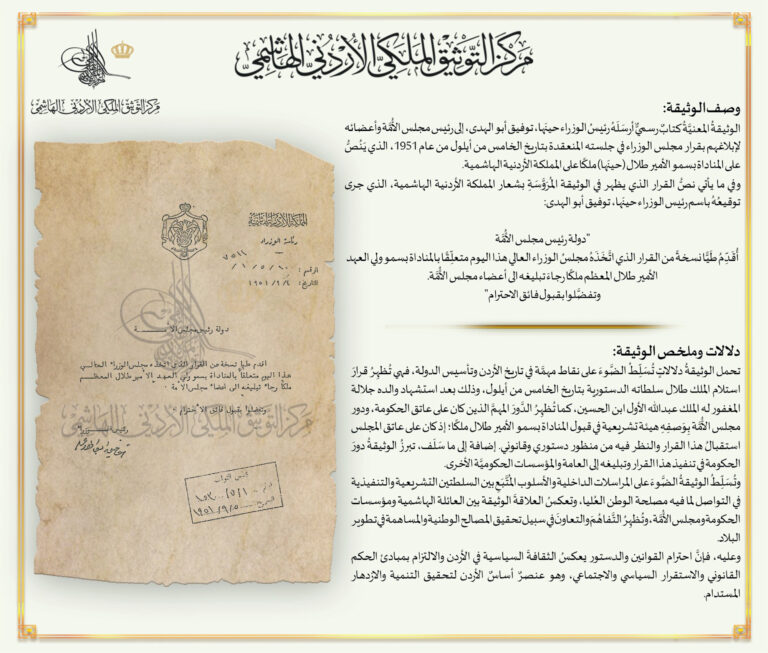 مركز التوثيق الملكي الأردني الهاشمي
مركز التوثيق الملكي الأردني الهاشمي
وصف الوثيقة:
الوثيقةُ المعنيَّةُ كتابٌ رسميٌّ أرسَلَهُ رئيسُ الوزراء حينَها، توفيق أبو الهدى، إلى رئيس مجلس الأُمَّة وأعضائه
لإبلاغهم بقرار مجلس الوزراء في جلسته المنعقدة بتاريخ الخامس من أيلول من عام 1951، الذي يَنُصُّ
على المناداة بسمو الأمير طلال (حينَها) ملكًا على المملكة الأردنية الهاشمية.
وفي ما يأتي نصُّ القرار الذي يظهر في الوثيقة المُرَوَّسَةِ بشعار المملكة الأردنية الهاشمية، الذي جرى
توقيعُهُ باسم رئيس الوزراء حينَها، توفيق أبو الهدى:
"دولة رئيس مجلس الأُمَّة
أُقَدِّمُ طيًّا نسخةً من القرار الذي اتَّخَذَهُ مجلسُ الوزراء العالي هذا اليوم متعلِّقًا بالمناداة بسمو ولي العهد
الأمير طلال المعظم ملكًا رجاءَ تبليغه إلى أعضاء مجلس الأُمَّة.
وتفضَّلوا بقبول فائق الاحترام"
دلالات وملخص الوثيقة:
تحمل الوثيقةُ دلالاتٍ تُسَلِّطُ الضَّوءَ على نقاط مهمَّة في تاريخ الأردن وتأسيس الدولة، فهي تُظهِرُ قرارَ
استلام الملك طلال سلطاته الدستورية بتاريخ الخامس من أيلول، وذلك بعد استشهاد والده جلالة
المغفور له الملك عبدالله الأول ابن الحسين، كما تُظهِرُ الدَّورَ المهمَّ الذين كان على عاتق الحكومة، ودور
مجلس الأُمَّة بِوَصفِهِ هيئة تشريعية في قبول المناداة بسمو الأمير طلال ملكًا؛ إذ كان على عاتق المجلس
استقبالُ هذا القرار والنظر فيه من منظور دستوري وقانوني. إضافة إلى ما سَلَف، تبرزُ الوثيقةُ دورَ
الحكومة في تنفيذ هذا القرار وتبليغه إلى العامة والمؤسسات الحكوميَّة الأخرى.
وتُسَلِّطُ الوثيقةُ الضَّوءَ على المراسلات الداخلية والأسلوب المُتَّبَعِ بين السلطتين التشريعية والتنفيذية
في التواصل لما فيه مصلحة الوطن العُليا، وتعكسُ العلاقةَ الوثيقة بين العائلة الهاشمية ومؤسسات
الحكومة ومجلس الأُمَّة، وتُظهِرُ التَّفاهُمَ والتعاونَ في سبيل تحقيق المصالح الوطنية والمساهمة في تطوير
البلاد.
وعليه، فإنَّ احترام القوانين والدستور يعكسُ الثقافةَ السياسية في الأردن والالتزام بمبادئ الحكم
القانوني والاستقرار السياسي والاجتماعي، وهو عنصرٌ أساسٌ الأردن لتحقيق التنمية والازدهار
المستدام.
المملكة الأردنية الهاشمية
رئاسة الوزراء
الرقم :
التاريخ : ١٩٥١/٩/٤
دولة رئيس مجلس الأمــــة
اقدم طيا نسخة من القرار الذي اتخذه مجلس الوزراء العالــي
هذا اليوم متعلقا بالمناداة بسمو ولي العهد الامير طلال المعظــم
ملكا رجاء تبليغه الى اعضاء مجلس الامة .
وتفضلوا بقبول فائق الاحترام
مركز التوثيق الملكي الأردني الهاشمي
رئيس الوزراء
مجلس النواب